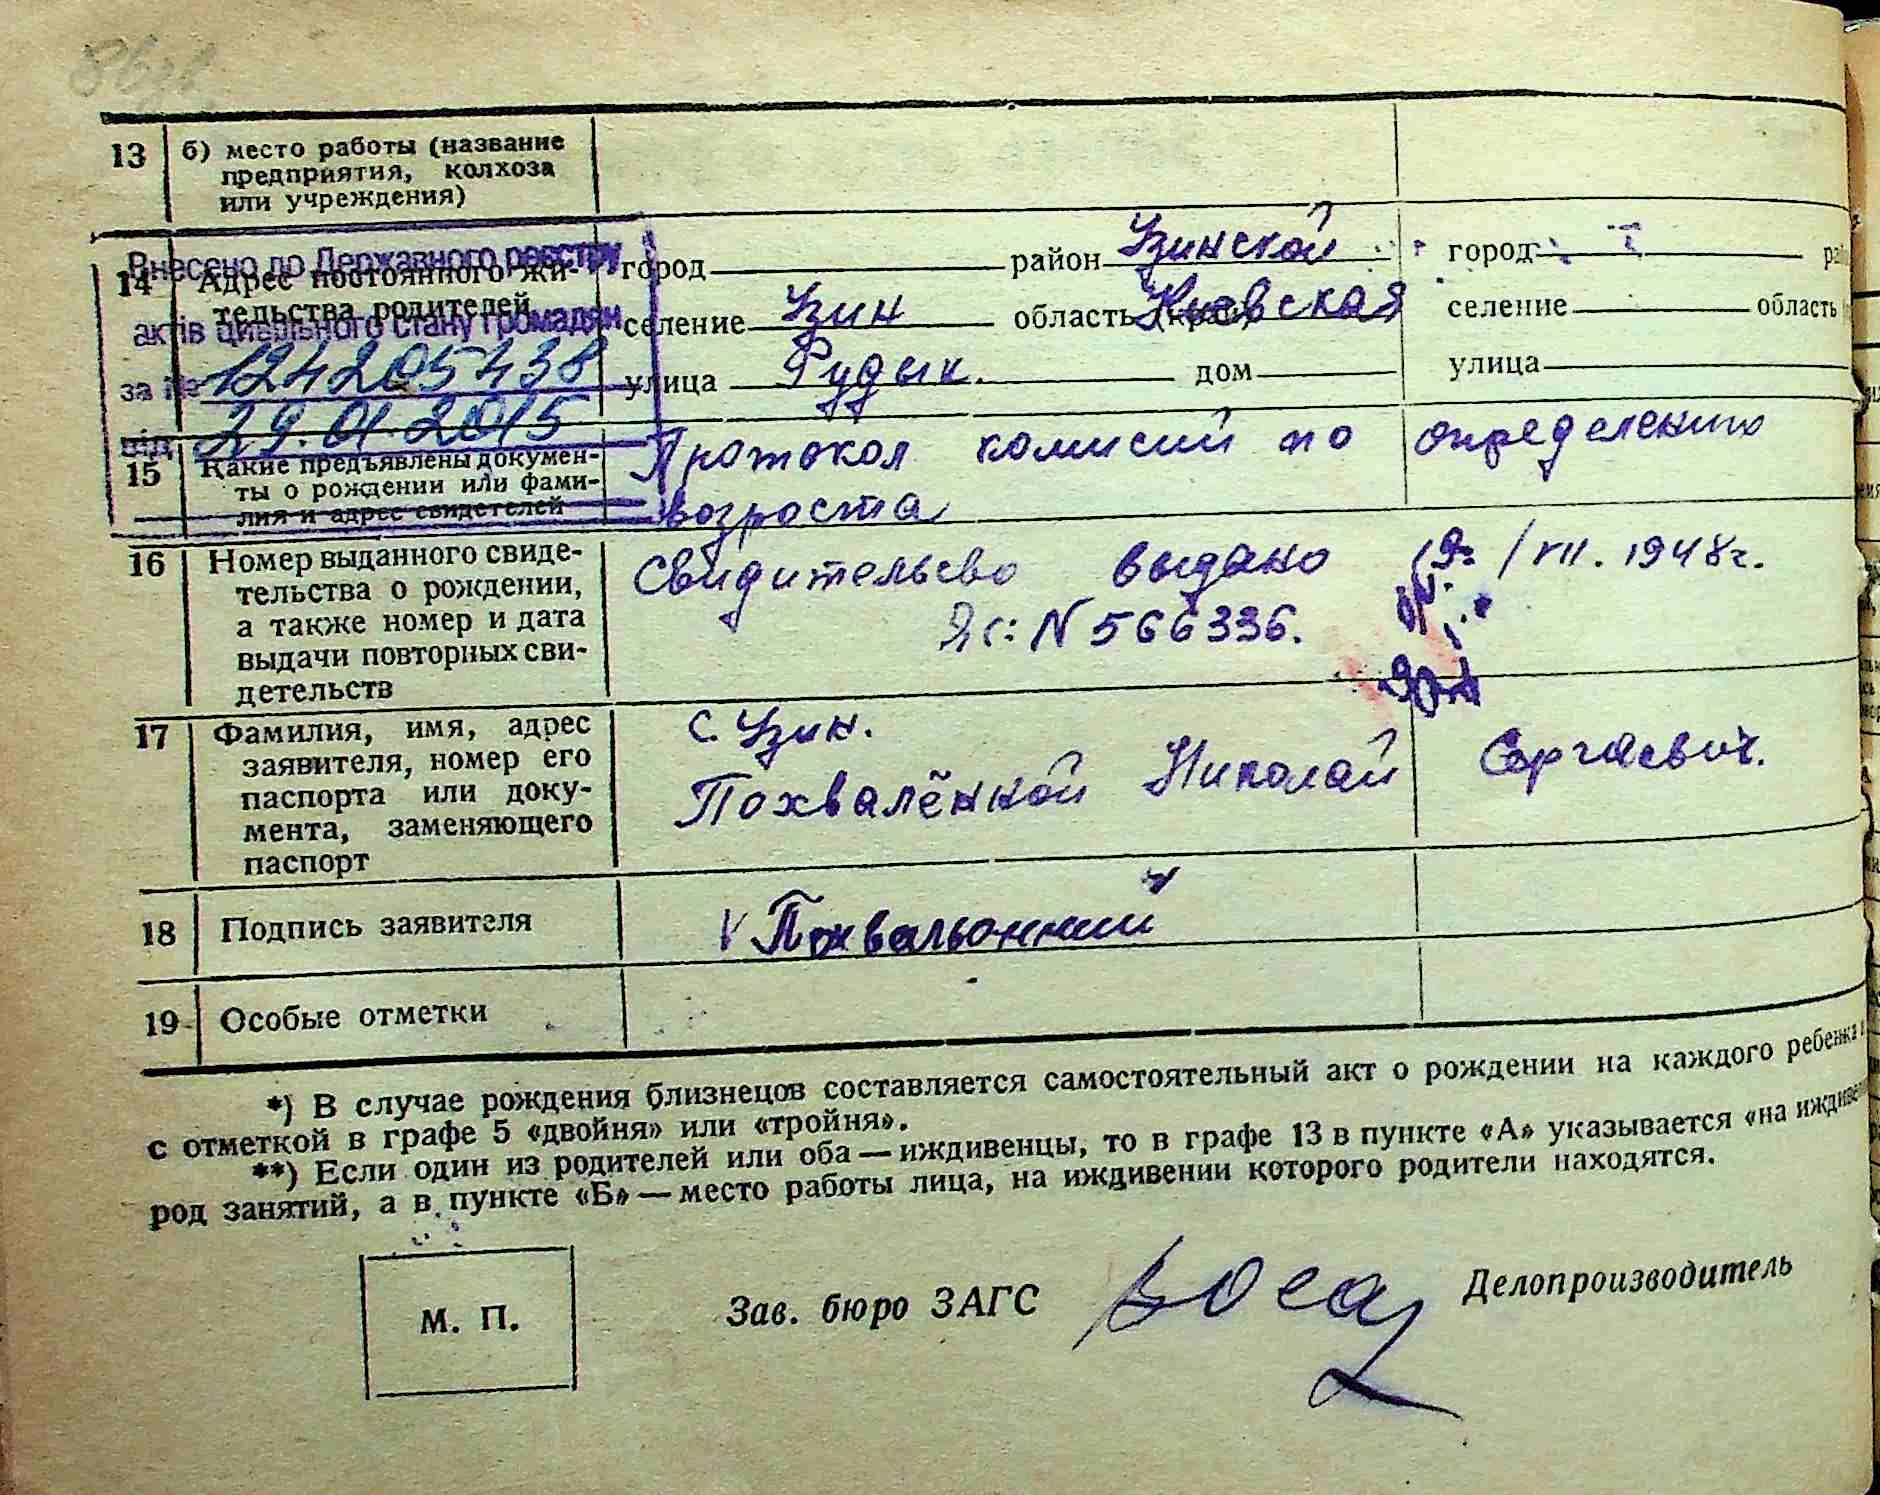 13 б) место работы (название
предприятия, колхоза
или учреждения)
Внесено до Державного реєстру
актів цивільного стану громадян
за № 124205438
від 29.01.2015
14 Адрес постоянного жи-
тельства родителей
город район Узинской
селение Узин область (край) Киевская
улица Рудык. дом
город
селение область
улица
15 Какие предъявлены докумен-
ты о рождении или фами-
лия и адрес свидетелей
Протокол комисий по определению
возроста
16 Номер выданного свиде-
тельства о рождении,
а также номер и дата
выдачи повторных сви-
детельств
Свидительсво выдано 19 /VII. 1948г.
Яс: N 566336.
17 Фамилия, имя, адрес
заявителя, номер его
паспорта или доку-
мента, заменяющего
паспорт
с. Узин.
Похвалённой Николай Сергаевич.
18 Подпись заявителя
V Похвальонний
19 Особые отметки
*) В случае рождения близнецов составляется самостоятельный акт о рождении на каждого ребенка
с отметкой в графе 5 «двойня» или «тройня».
**) Если один из родителей или оба — иждивенцы, то в графе 13 в пункте «А» указывается «на
род занятий, а в пункте «Б» — место работы лица, на иждивении которого родители находятся.
М. П.
Зав. бюро ЗАГС
Делопроизводитель